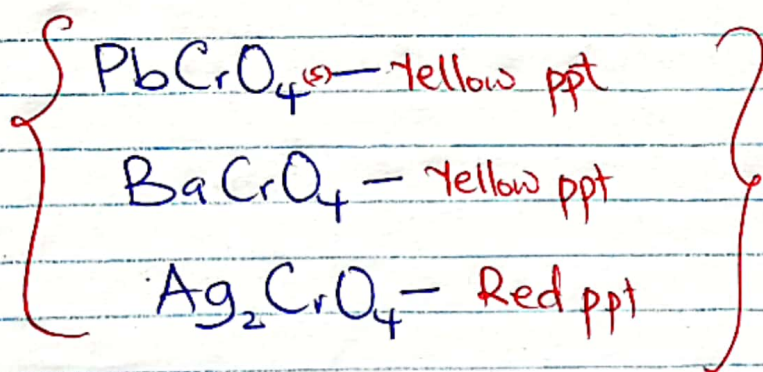 PbCrO₄(s) — Yellow ppt
BaCrO₄ — Yellow ppt
Ag₂CrO₄ — Red ppt